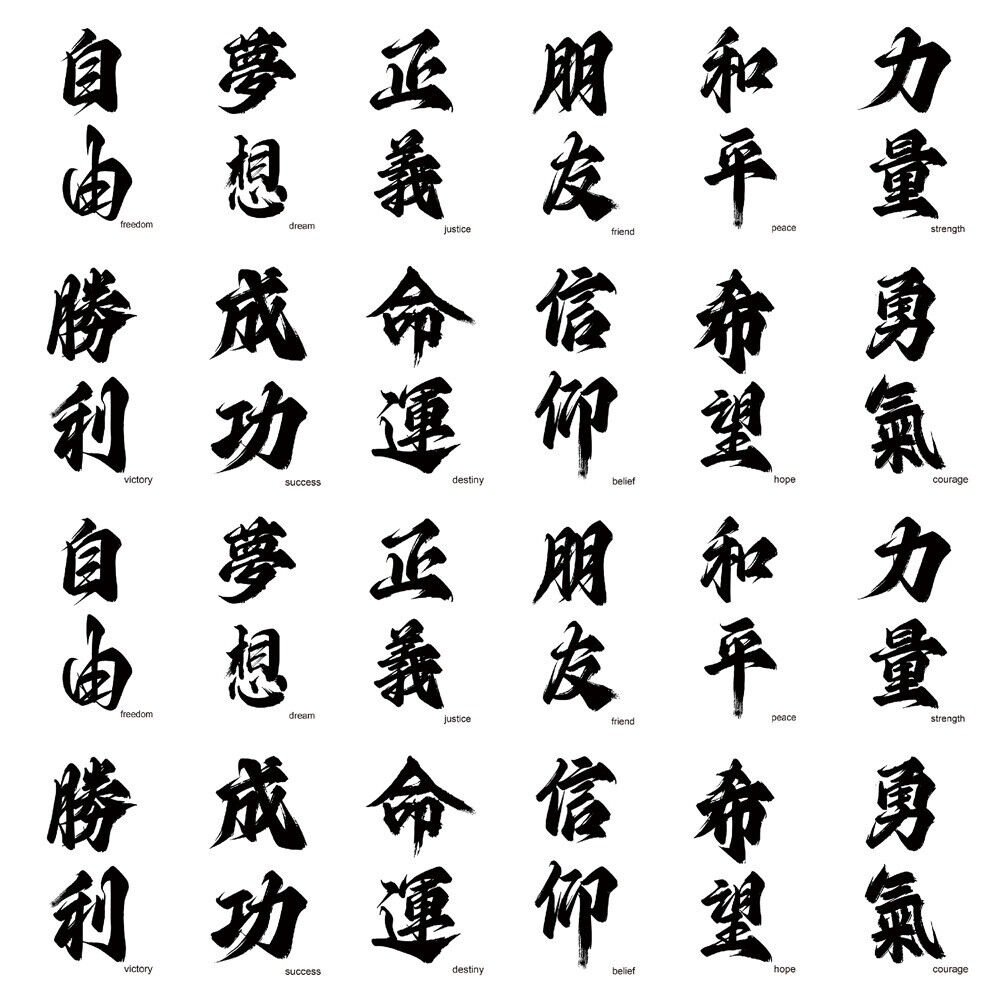 自由
freedom
夢想
dream
正義
justice
朋友
friend
和平
peace
力量
strength
勝利
victory
成功
success
命運
destiny
信仰
belief
希望
hope
勇氣
courage
自由
freedom
夢想
dream
正義
justice
朋友
friend
和平
peace
力量
strength
勝利
victory
成功
success
命運
destiny
信仰
belief
希望
hope
勇氣
courage